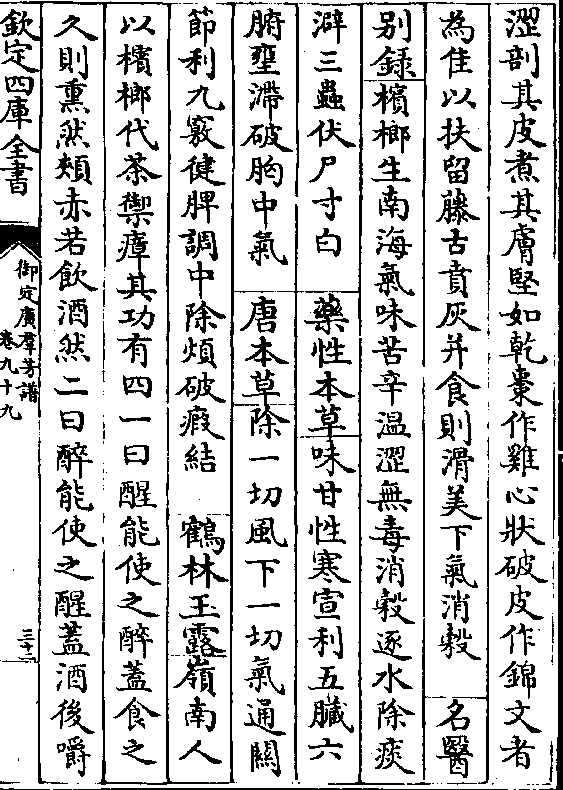 澀剖其皮煮其膚堅如乾棗作雞心狀破皮作錦文者
為佳以扶留藤古賁灰并食則滑美下氣消穀　名醫
别録檳榔生南海氣味苦辛温澀無毒消穀逐水除痰
澼三蟲伏尸寸白　藥性本草味甘性寒宣利五臟六
腑壅滯破胸中氣　唐本草除一切風下一切氣通關
節利九竅健脾調中除煩破癥結　鶴林玉露嶺南人
以檳榔代茶禦瘴其功有四一曰醒能使之醉蓋食之
久則熏然頰赤若飲酒然二曰醉能使之醒蓋酒後嚼
欽定四庫全書
御定廣羣芳譜
卷九十九
三十一